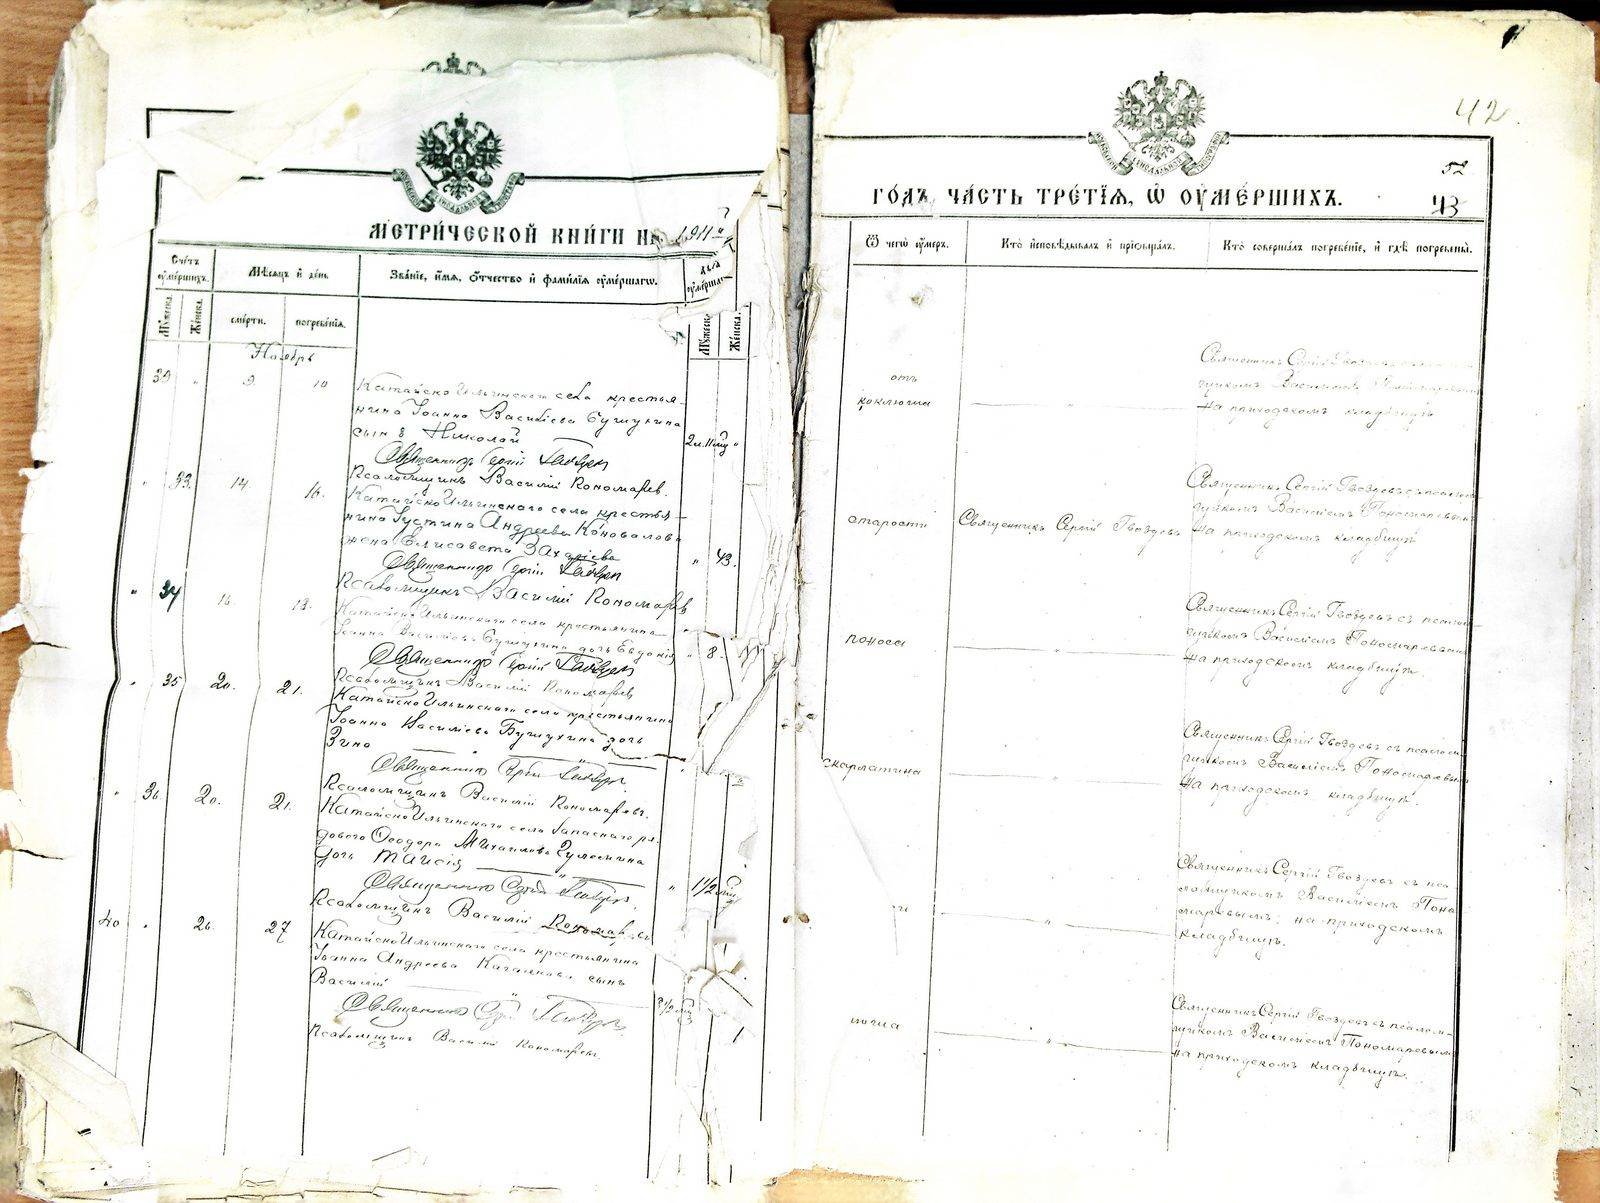 МЕТРИЧЕСКОЙ КНИГИ НА 1911й
Счетъ умершихъ.
Мѣсяцъ и день
Званіе, имя, отчество и фамилія умершаго.
Лѣта умершаго
Мужеска.
Женска.
смерти.
погребенія.
Мужеска
Женска.
Ноябрь
39 " 9. 10 Катайско Ильинскаго села крестья-
нина Іоанна Василіева Бушухина
сынъ Николай 2 л. 11 мц "
Священникъ Сергій Гвоздевъ
Псаломщикъ Василій Пономаревъ.
" 33. 14. 16. Катайско Ильинскаго села крестья-
нина Іустина Андреева Коновалова
жена Елисавета Захаріева " 43.
Священникъ Сергій Гвоздевъ
Псаломщикъ Василій Пономаревъ
" 34 16. 18. Катайско Ильинскаго села крестьянина
Іоанна Василіева Бушухина дочь Евдокія " 8.
Священникъ Сергій Гвоздевъ
Псаломщикъ Василій Пономаревъ
" 35 20. 21. Катайско Ильинскаго села крестьянина
Іоанна Василіева Бушухина дочь
Зина
Священникъ Сергій Гвоздевъ.
Псаломщикъ Василій Пономаревъ.
" 36. 20. 21. Катайско Ильинскаго села запаснаго ря-
дового Ѳеодора Михаилова
дочь Таисія " 1 1/2 мц
Священникъ Сергій Гвоздевъ.
Псаломщикъ Василій Пономаревъ
40 " 26. 27 Катайско Ильинскаго села крестьянина
Іоанна Андреева сынъ
Василій 1/2 мц
Священникъ Сергій Гвоздевъ
Псаломщикъ Василій Пономаревъ.
42.
52
43
ГОДЪ ЧАСТЬ ТРЕТІЯ, Ѿ ОУМЕРШИХЪ.
Ѿ чегѡ умеръ.
Кто исповѣдывалъ и пріобщалъ.
Кто совершалъ погребеніе, и гдѣ погребены.
отъ
коклюша "
Священникъ Сергій Гвоздевъ
щикомъ Василіемъ Пономаревымъ
на приходскомъ кладбищѣ
старости Священникъ Сергій Гвоздевъ
Священникъ Сергій Гвоздевъ съ псалом-
щикомъ Василіемъ Пономаревымъ
на приходскомъ кладбищѣ
поноса "
Священникъ Сергій Гвоздевъ съ псалом-
щикомъ Василіемъ Пономаревымъ
на приходскомъ кладбищѣ.
скарлатина "
Священникъ Сергій Гвоздевъ съ псалом-
щикомъ Василіемъ Пономаревымъ
на приходскомъ кладбищѣ.
"
Священникъ Сергій Гвоздевъ съ пса-
ломщикомъ Василіемъ Поно-
маревымъ; на приходскомъ
кладбищѣ.
"
Священникъ Сергій Гвоздевъ съ псалом-
щикомъ Василіемъ Пономаревымъ
на приходскомъ кладбищѣ.